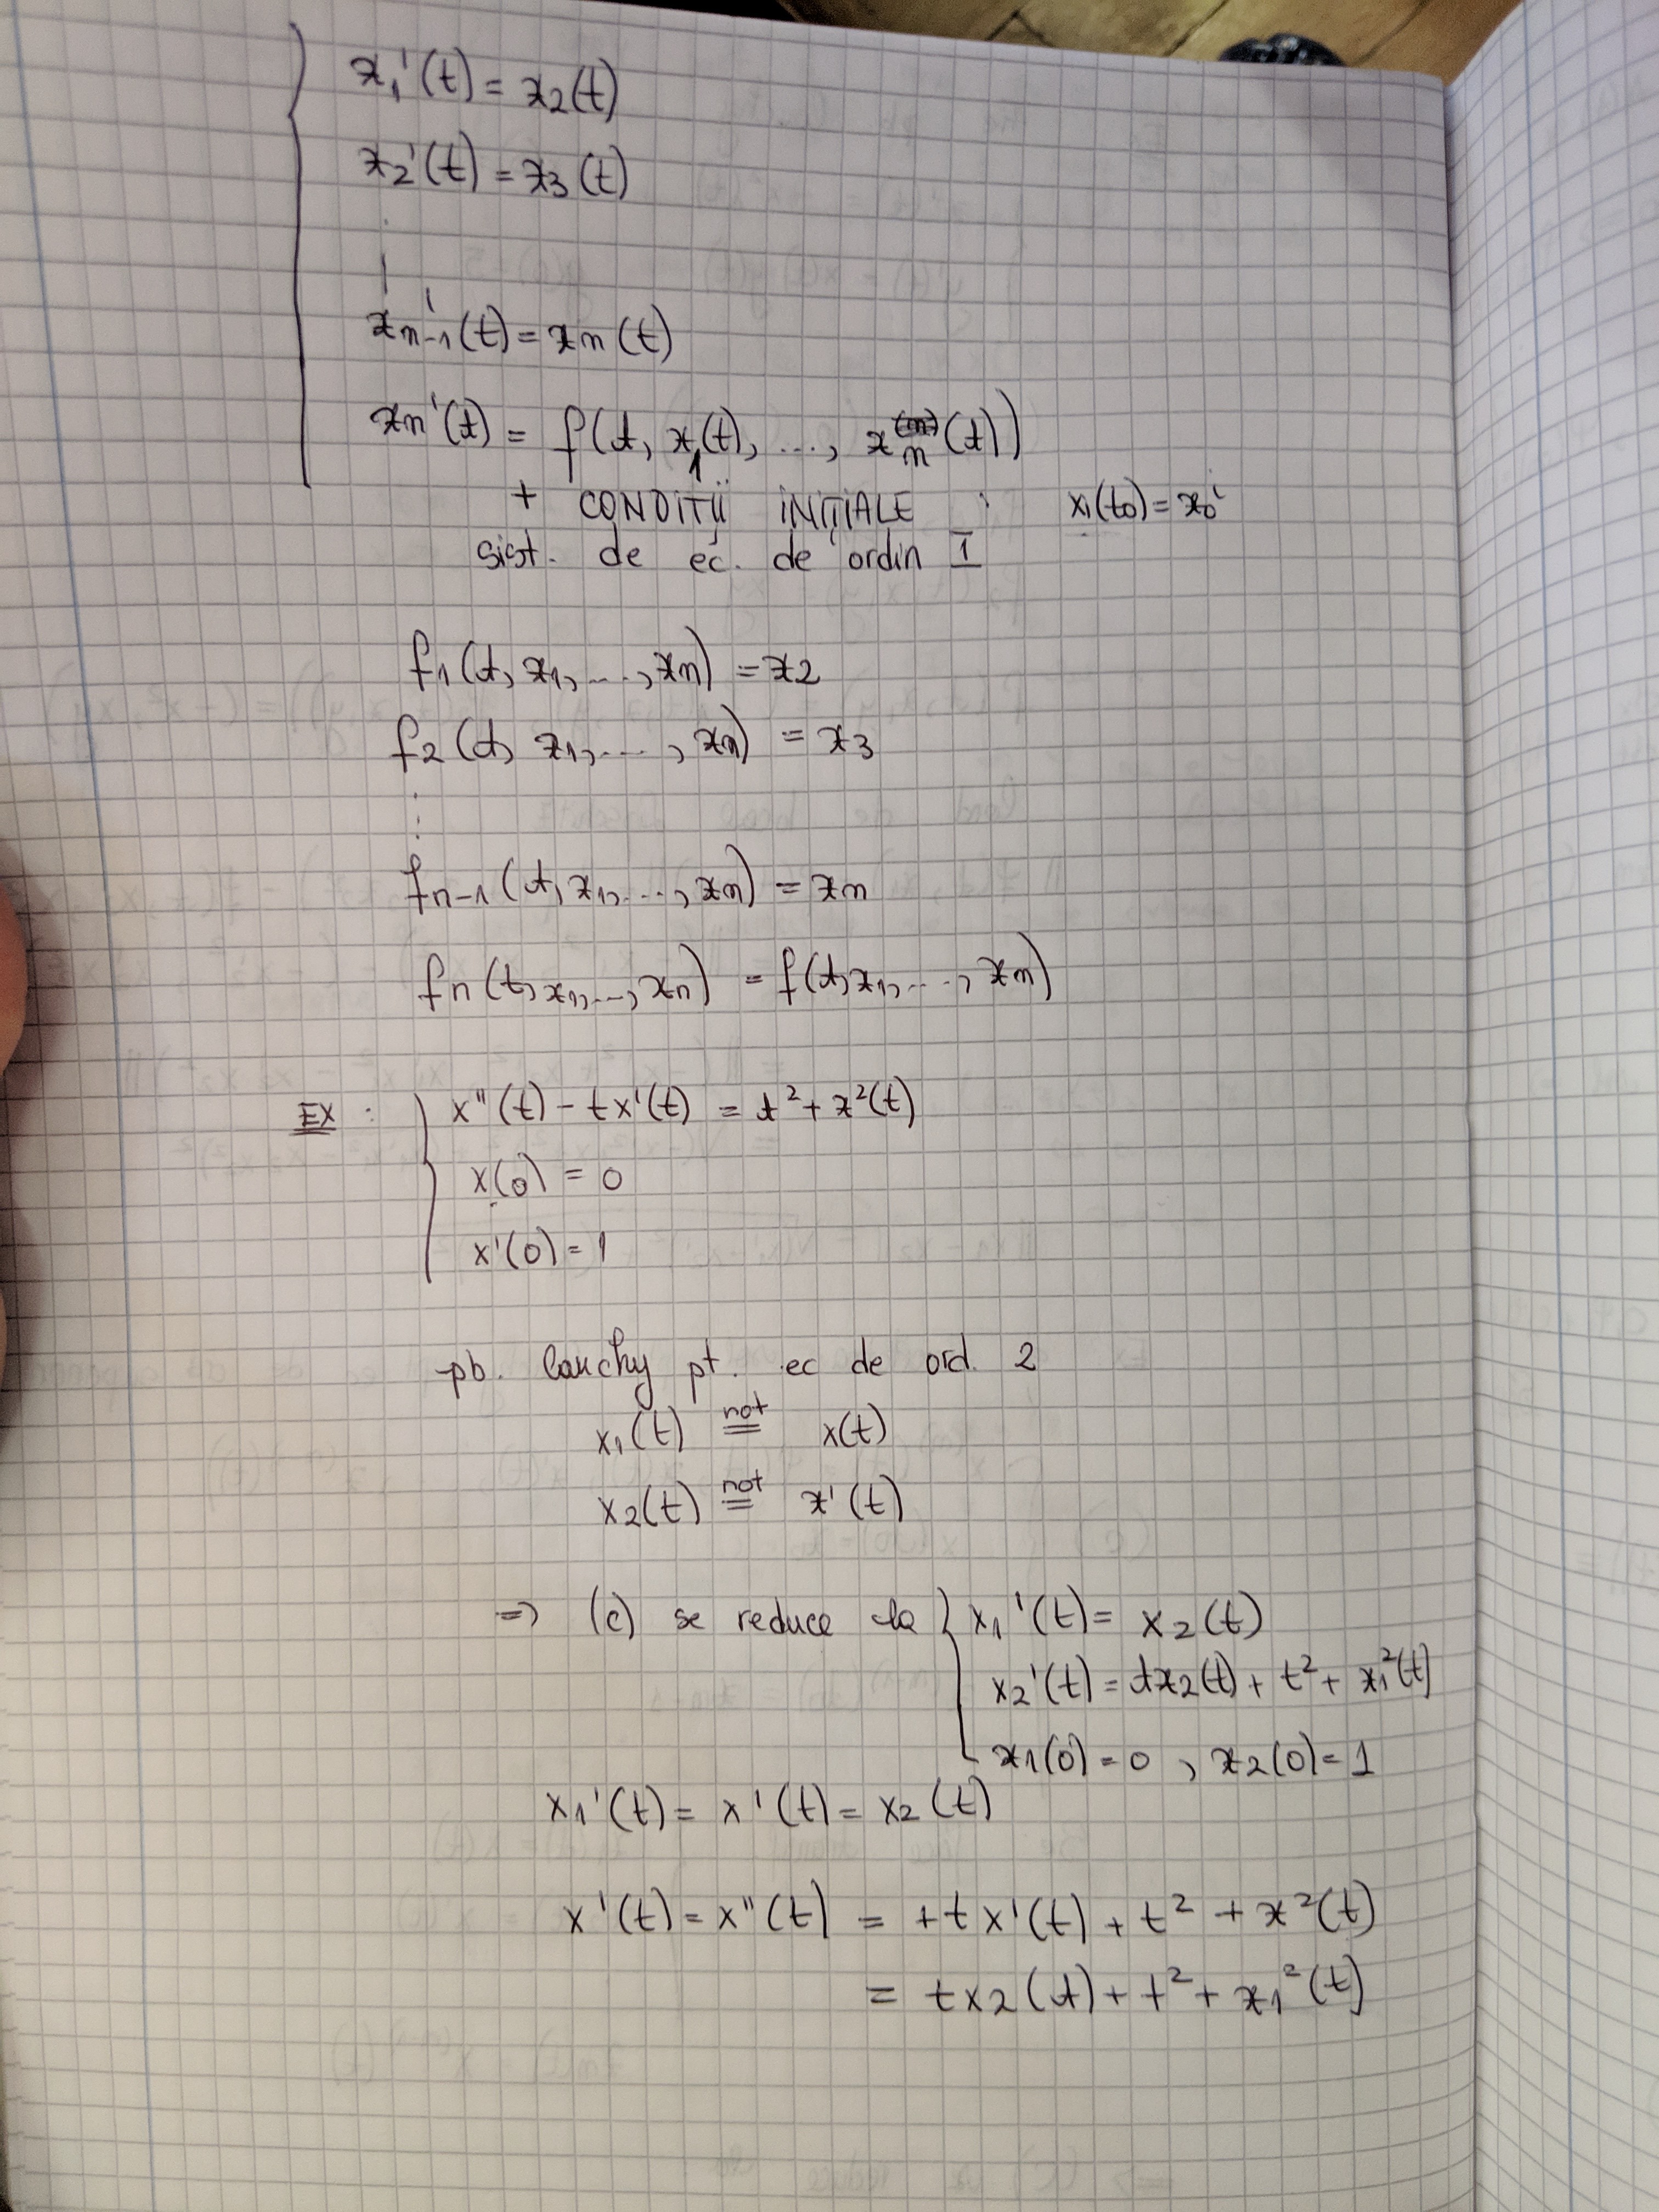 x₁'(t) = x₂(t)
x₂'(t) = x₃(t)
⋮
xₙ₋₁'(t) = xₙ(t)
xₙ'(t) = f(t, x₁(t), ..., xₙ(t))
+ CONDIȚII INIȚIALE : xᵢ(t₀) = x₀ⁱ
sist. de ec. de ordin I
f₁(t, x₁, ..., xₙ) = x₂
f₂(t, x₁, ..., xₙ) = x₃
⋮
fₙ₋₁(t, x₁, ..., xₙ) = xₙ
fₙ(t, x₁, ..., xₙ) = f(t, x₁, ..., xₙ)
EX : { x''(t) - tx'(t) = t² + x²(t)
x(0) = 0
x'(0) = 1
pb. Cauchy pt. ec de ord. 2
x₁(t) not= x(t)
x₂(t) not= x'(t)
=> (c) se reduce la { x₁'(t) = x₂(t)
x₂'(t) = tx₂(t) + t² + x₁²(t)
x₁(0) = 0 , x₂(0) = 1
x₁'(t) = x'(t) = x₂(t)
x'(t) = x''(t) = +tx'(t) + t² + x²(t)
= tx₂(t) + t² + x₁²(t)